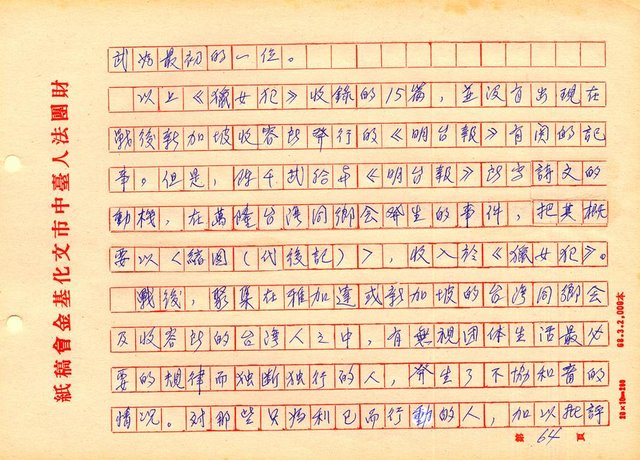 武治最初的一位。
以上《獵女犯》收錄的15篇，並沒有出現在
戰後新加坡收容所發行的《明台報》有関的記
事。但是，陳千武給与《明台報》所写詩文的
動機，在萬隆台湾同鄉会発生的事件，把其概
要以〈縮図(代後記)〉，收入於《獵女犯》。
戰後，聚集在雅加達或新加坡的台湾同鄉会
及收容所的台湾人之中，有無視団体生活最必
要的規律而独断独行的人，発生了不協和音的
情況。対那些只為利己而行動的人，加以批評
第64頁
財團法人臺中市文化基金會稿紙
68.3.2,000本
20×10=200